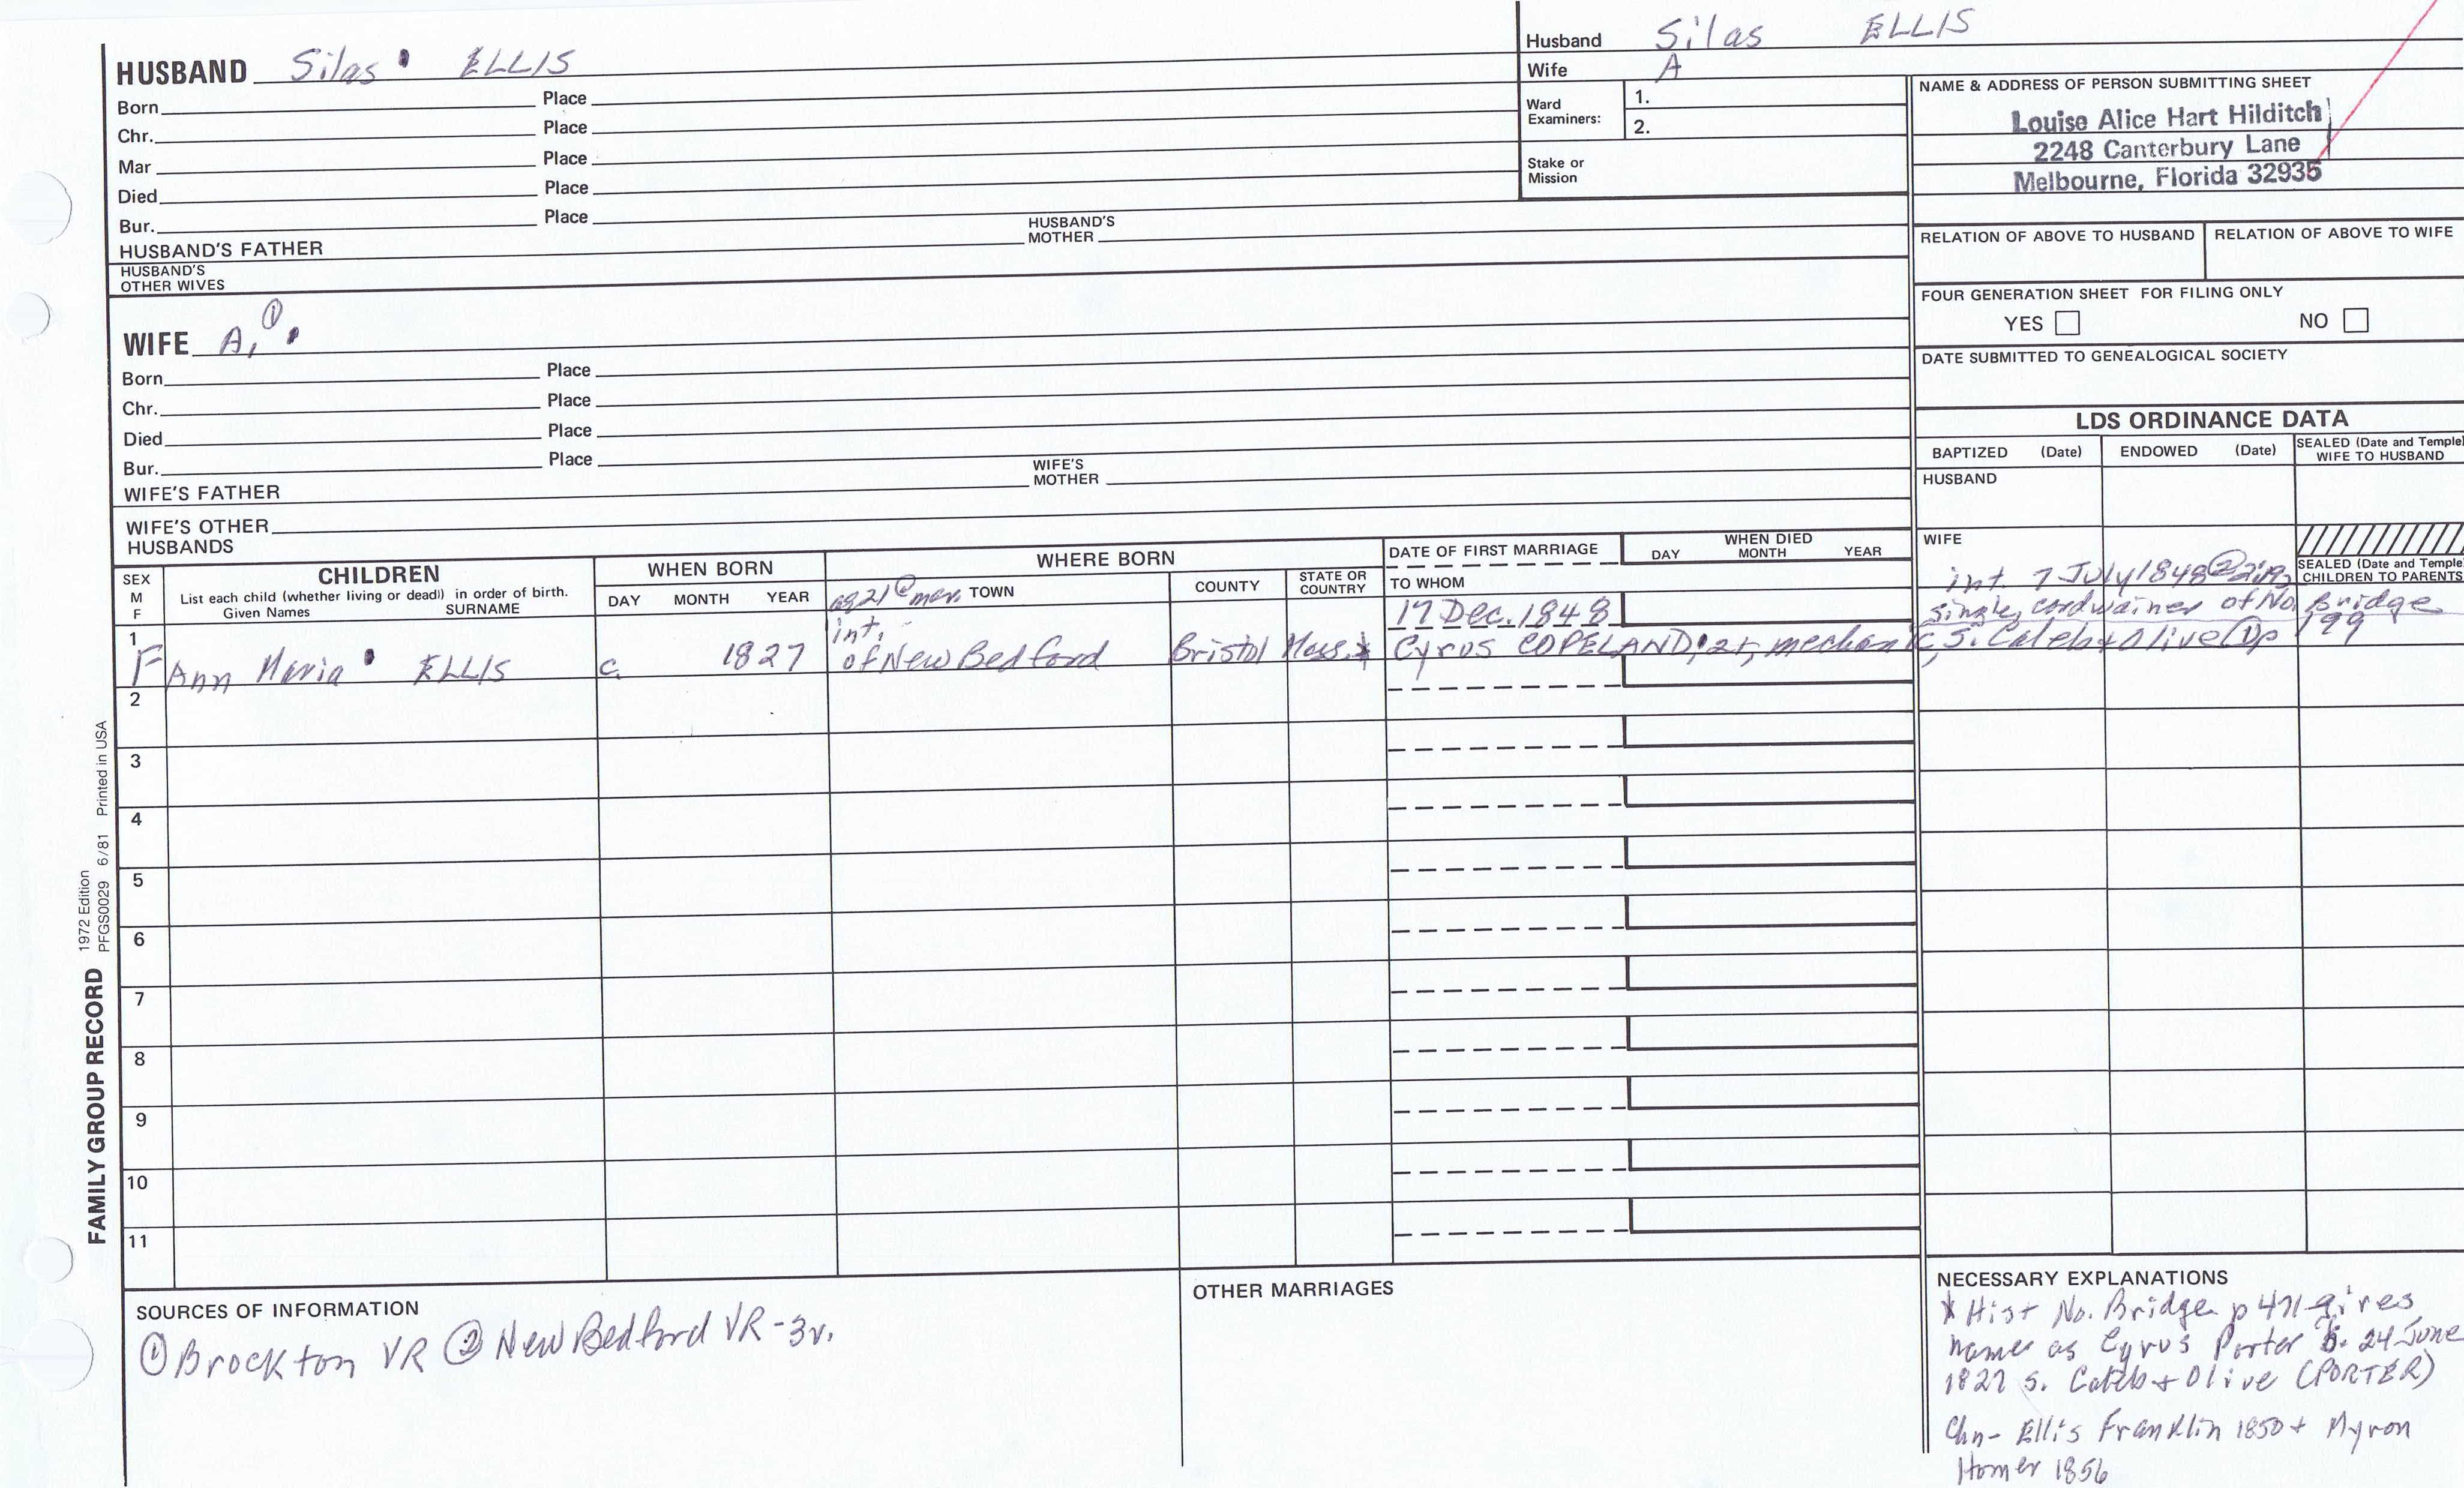 HUSBAND Silas ELLIS
Born Place
Chr. Place
Mar Place
Died Place
Bur. Place
HUSBAND'S FATHER HUSBAND'S MOTHER
HUSBAND'S OTHER WIVES
WIFE A, ①
Born Place
Chr. Place
Died Place
Bur. Place
WIFE'S FATHER WIFE'S MOTHER
WIFE'S OTHER HUSBANDS
Husband Silas ELLIS
Wife A
Ward Examiners: 1.
2.
Stake or Mission
NAME & ADDRESS OF PERSON SUBMITTING SHEET
Louise Alice Hart Hilditch
2248 Canterbury Lane
Melbourne, Florida 32935
RELATION OF ABOVE TO HUSBAND RELATION OF ABOVE TO WIFE
FOUR GENERATION SHEET FOR FILING ONLY
YES NO
DATE SUBMITTED TO GENEALOGICAL SOCIETY
LDS ORDINANCE DATA
BAPTIZED (Date) ENDOWED (Date) SEALED (Date and Temple) WIFE TO HUSBAND
HUSBAND
WIFE
SEALED (Date and Temple) CHILDREN TO PARENTS
SEX M F
CHILDREN
List each child (whether living or dead) in order of birth.
Given Names SURNAME
WHEN BORN
DAY MONTH YEAR
WHERE BORN
TOWN COUNTY STATE OR COUNTRY
DATE OF FIRST MARRIAGE
TO WHOM
WHEN DIED
DAY MONTH YEAR
int. 7 July 1848 ②
ag 21 @ mar.
17 Dec. 1848 single, cordwainer of No. Bridge
int.
1 F Ann Maria ELLIS c. 1827 of New Bedford Bristol Mass.* Cyrus COPELAND, 25, mechanic, S. Caleb + Olive ① p 199
2
3
4
5
6
7
8
9
10
11
SOURCES OF INFORMATION
① Brockton VR ② New Bedford VR-3v.
OTHER MARRIAGES
NECESSARY EXPLANATIONS
* Hist No. Bridge p 471 gives
names as Cyrus Porter b. 24 June
1827 s. Caleb + Olive (PORTER)
Chn- Ellis Franklin 1850 + Myron
Homer 1856
FAMILY GROUP RECORD
1972 Edition
PFGS0029 6/81 Printed in USA